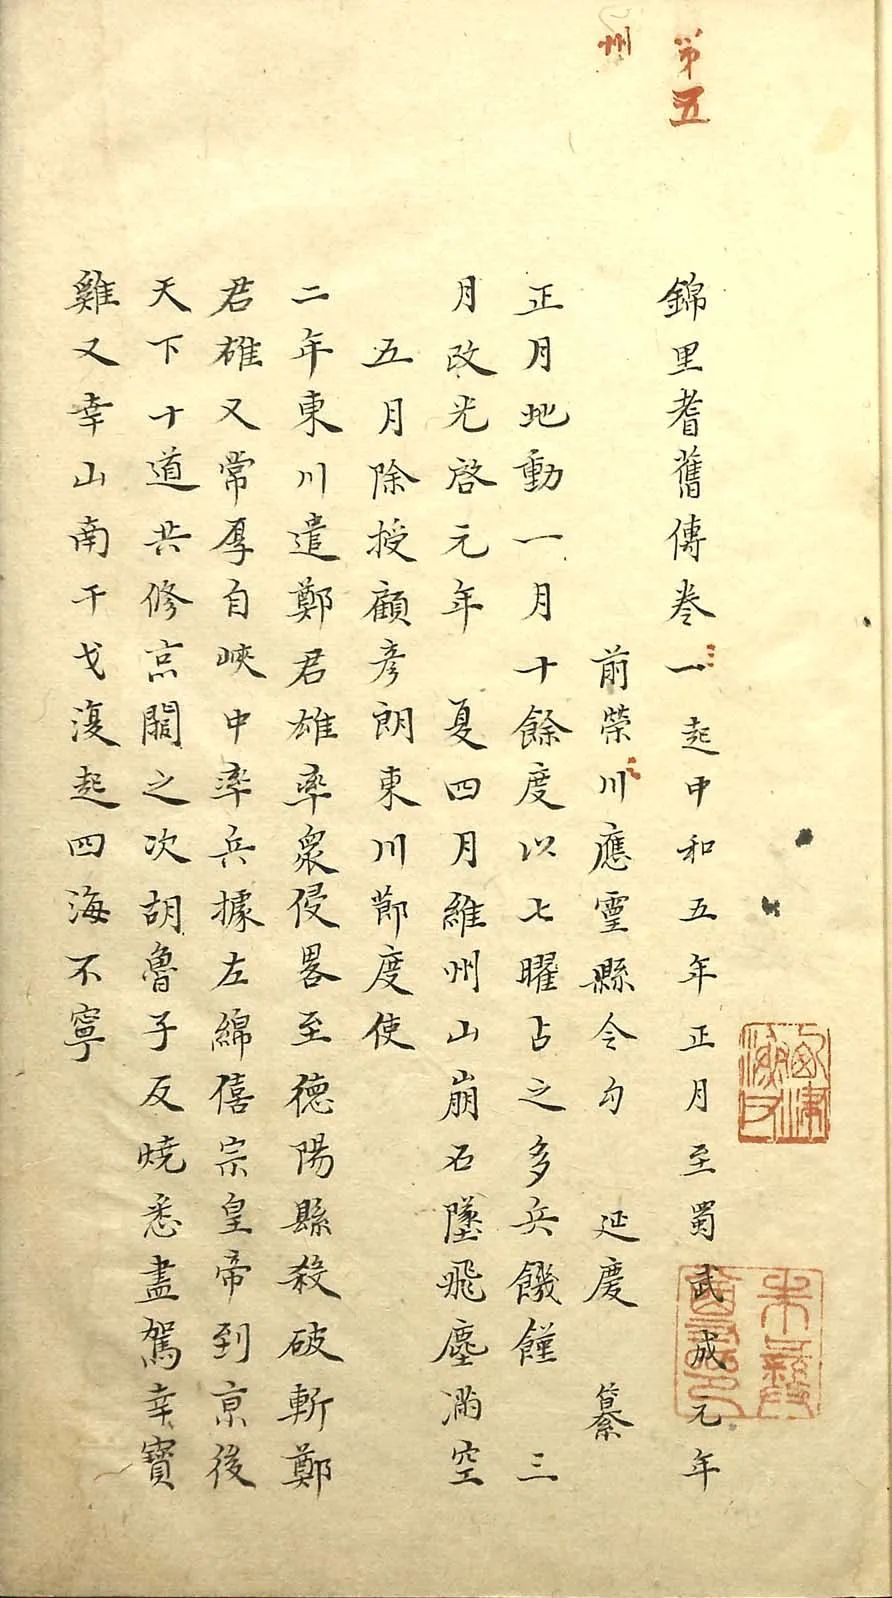 第五
州
錦里耆舊傳卷一 起中和五年正月至蜀武成元年
前榮川應靈縣令勾 延慶 纂
正月地動一月十餘度以七曜占之多兵饑饉 三
月改光啓元年 夏四月維州山崩石墜飛塵滿空
五月除授顧彥朗東川節度使
二年東川遣鄭君雄率衆侵畧至德陽縣殺破斬鄭
君雄又常厚自峽中率兵據左綿僖宗皇帝到京後
天下十道共修京闕之次胡魯子反燒悉盡駕幸寶
雞又幸山南干戈復起四海不寧